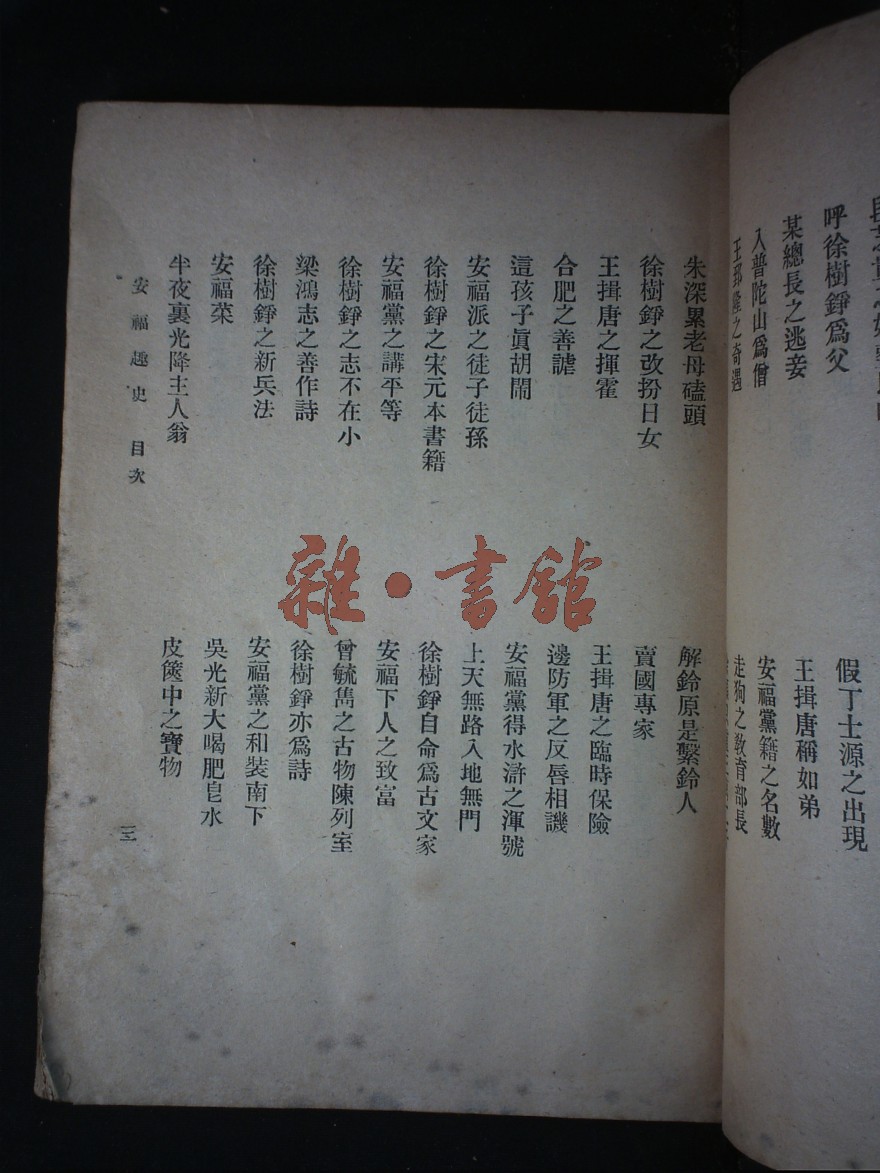 呼徐樹錚爲父
某總長之逃妾
入普陀山爲僧
王郅隆之奇遇
假丁士源之出現
王揖唐稱如弟
安福黨籍之名數
走狗之教育部長
朱深累老母磕頭
徐樹錚之改扮日女
王揖唐之揮霍
合肥之善謔
這孩子眞胡鬧
安福派之徒子徒孫
徐樹錚之宋元本書籍
安福黨之講平等
徐樹錚之志不在小
梁鴻志之善作詩
徐樹錚之新兵法
安福菜
半夜裏光降主人翁
解鈴原是繫鈴人
賣國專家
王揖唐之臨時保險
邊防軍之反唇相譏
安福黨得水滸之渾號
上天無路入地無門
徐樹錚自命爲古文家
安福下人之致富
曾毓雋之古物陳列室
徐樹錚亦爲詩
安福黨之和裝南下
吳光新大喝肥皂水
皮篋中之寶物
安福趣史 目次
三
雜·書館